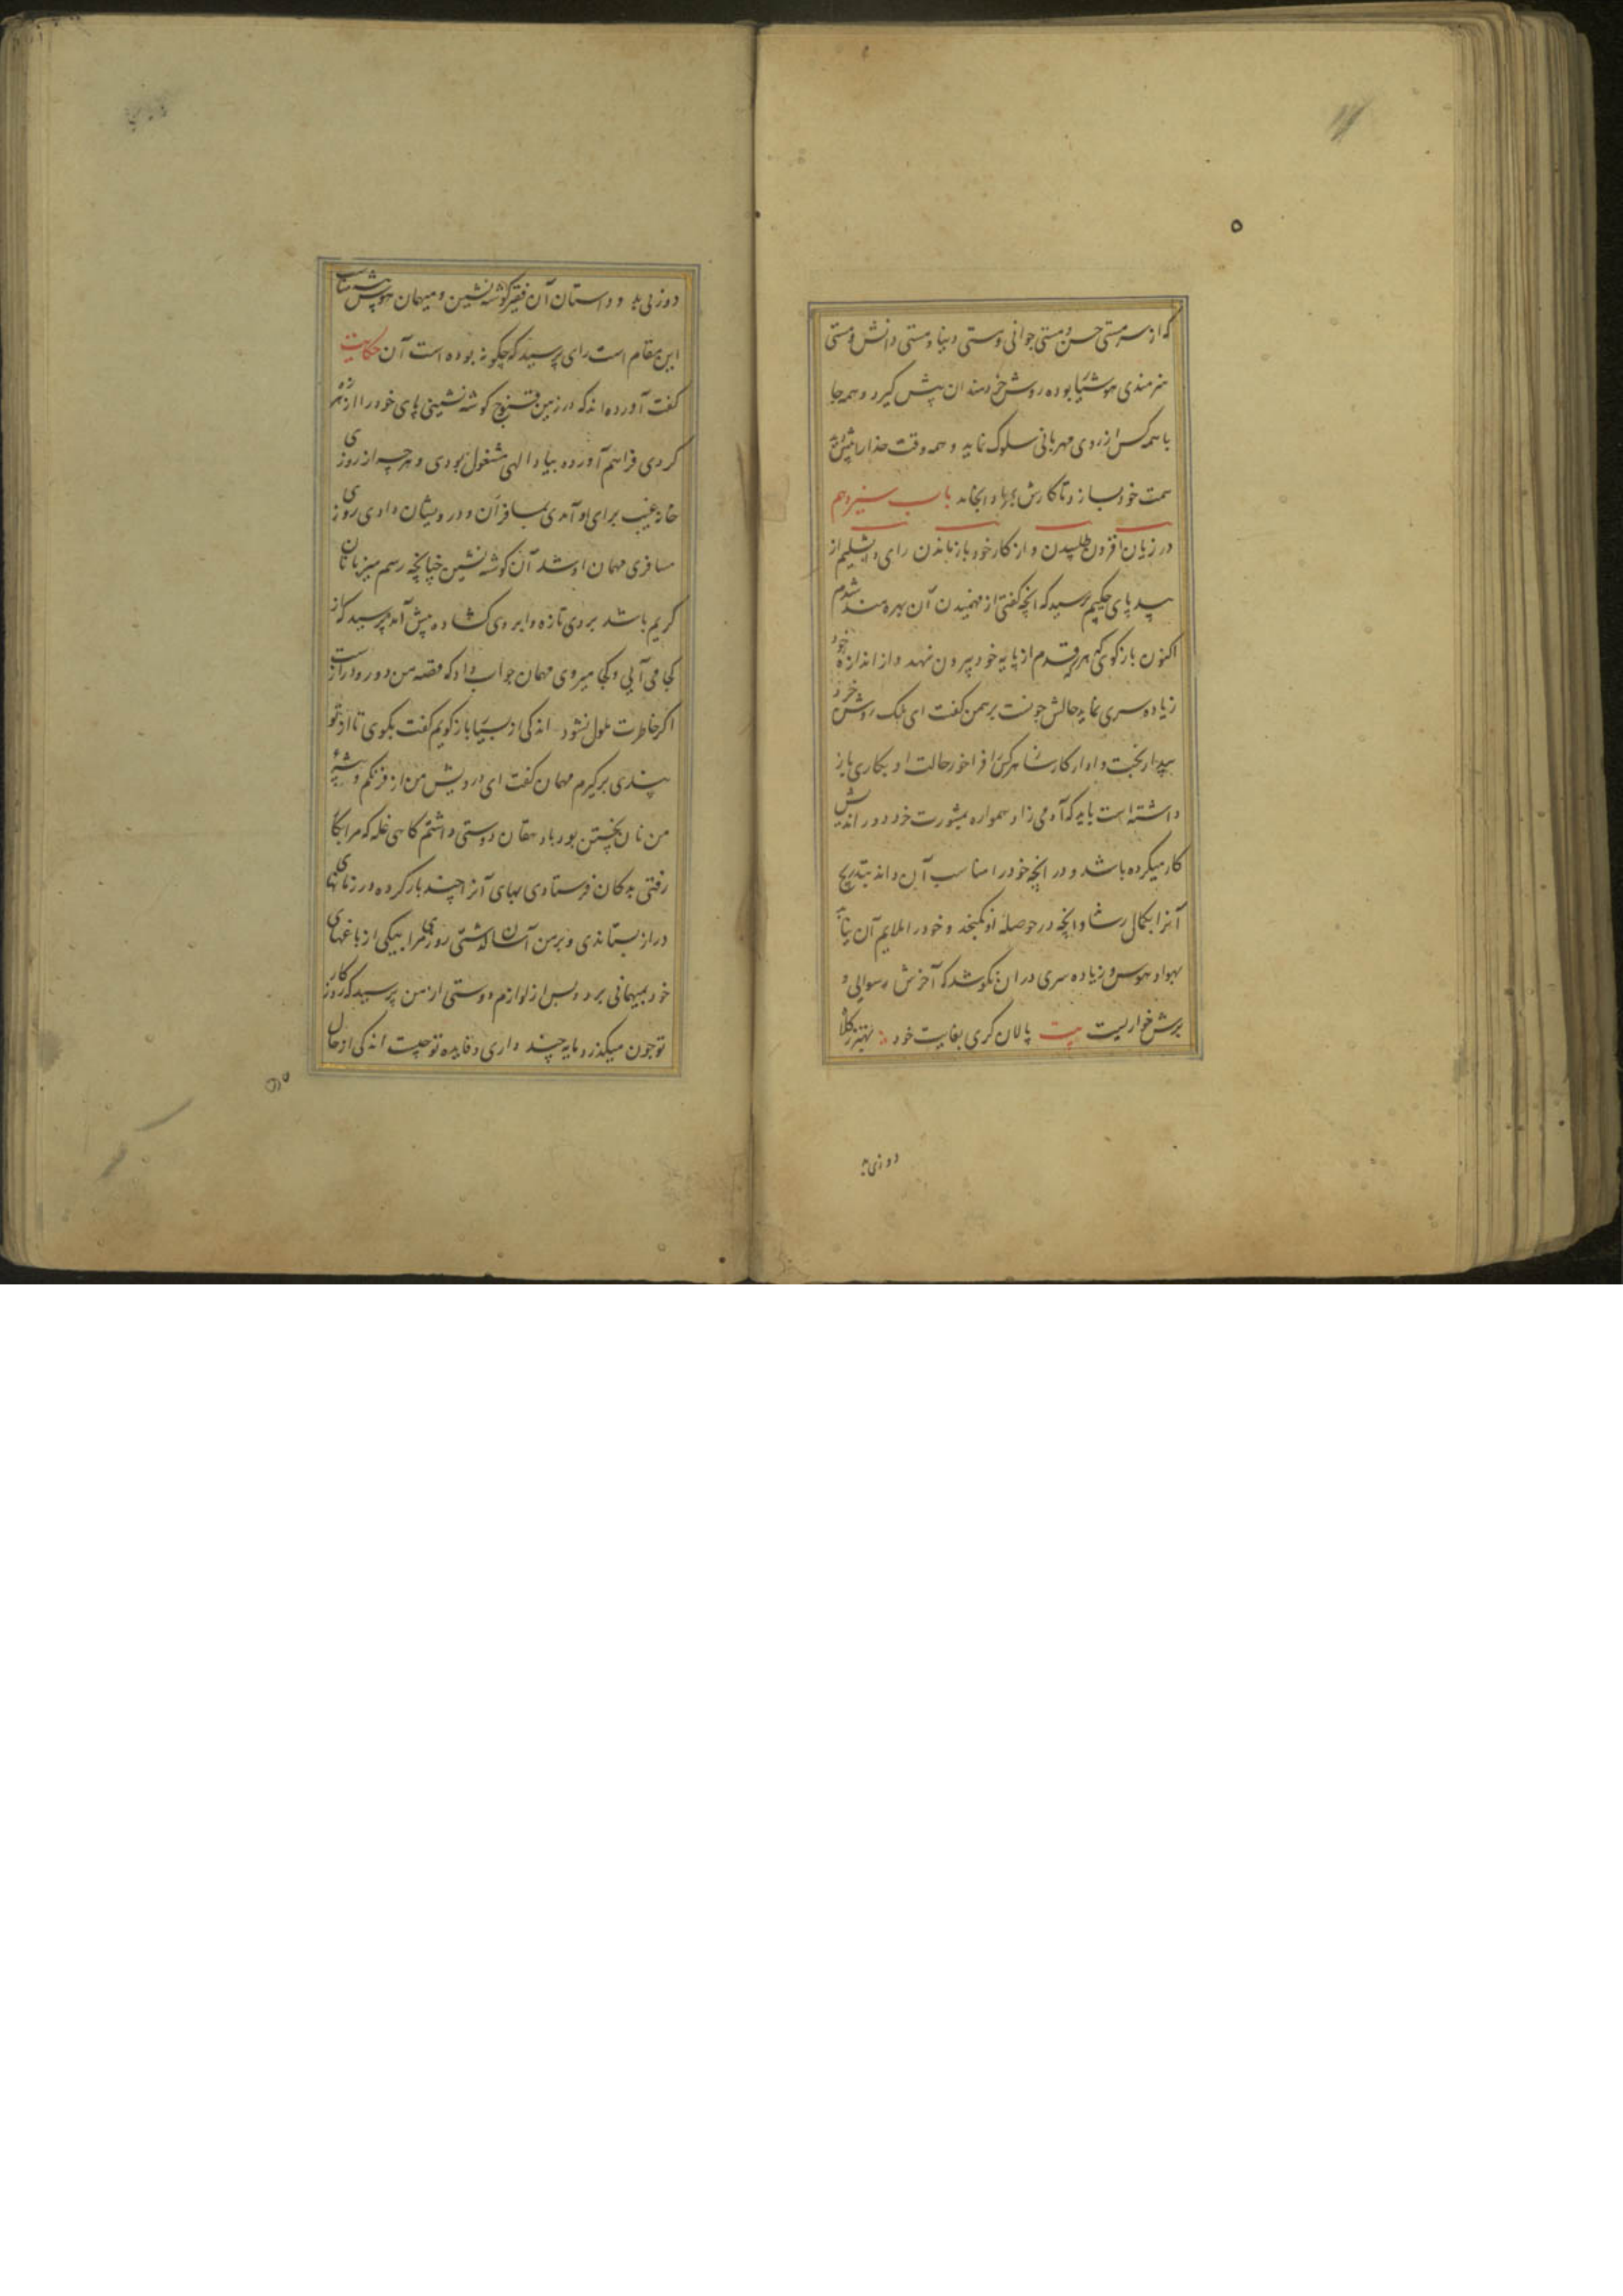 که از سرمستی حسن و مستی جوانی و مستی دنیا و مستی دانش و مستی
هنرمندی هوشیار بوده روش خردمندان پیش گیرد و همه جا
با همه کس از روی مهربانی سلوک نماید و همه وقت خدا را
همت خود سازد تا کارش باب سیزدهم
در زیان افزون طلبیدن و از کار خود باز ماندن رای دابشلیم از
بیدپای حکیم پرسید که آنچه گفتی از فهمیدن آن بهره مند شدم
اکنون بازگوی که هر که قدم از پایه خود بیرون نهد و از اندازه خود
زیاده سری نماید حالش چونست برهمن گفت ای ملک روشن خرد
بیدار بخت دادار کارساز هر کس را فراخور حالت او بکاری باز
داشته است باید که آدمی زاد همواره بمشورت خرد دور اندیش
کار میکرده باشد و در آنچه خود را مناسب آن داند بتدریج
آنرا بکمال رساند و آنچه در حوصله او نگنجد و خود را ملایم آن نیابد
بهوا و هوس و زیاده سری در آن نکوشد که آخرش رسوایی و
برش خواریست بیت پالان گری بغایت خود بهتر ز کلاه
دوزی بد
دوزی بد و داستان آن فقیر گوشه نشین و میهمان هوس پیشه مناسب
این مقام است رای پرسید که چگونه بوده است آن حکایت
گفت آورده اند که در زمین قنوج گوشه نشینی پای خود را از هرزه
گردی فراهم آورده بیاد الهی مشغول بودی و هر چه از روزی
خانه غیب برای او آمدی بمسافران و درویشان دادی روزی
مسافری مهمان او شد آن گوشه نشین چنانچه رسم میزبانان
کریم باشد بروی تازه و ابروی گشاده پیش آمد و پرسید که از
کجا می آیی و کجا میروی مهمان جواب داد که قصه من دور و دراز است
اگر خاطرت ملول نشود اندکی از بسیار باز گویم گفت بگوی تا از تو
پندی برگیرم مهمان گفت ای درویش من از فرنگم و پیشه
من نان پختن بود با دهقان دوستی داشتم گاهی غله که مرا بکار
رفتی بدکان فرستادی بهای آنرا چند بار کرده در زمانهای
دراز بستاندی و بر من آسان گذشتی روزی مرا بیکی از باغهای
خود بمیهمانی برد و پس از لوازم دوستی از من پرسید که روزگار
تو چون میگذرد مایه چند داری و فایده تو چیست اندکی از حال